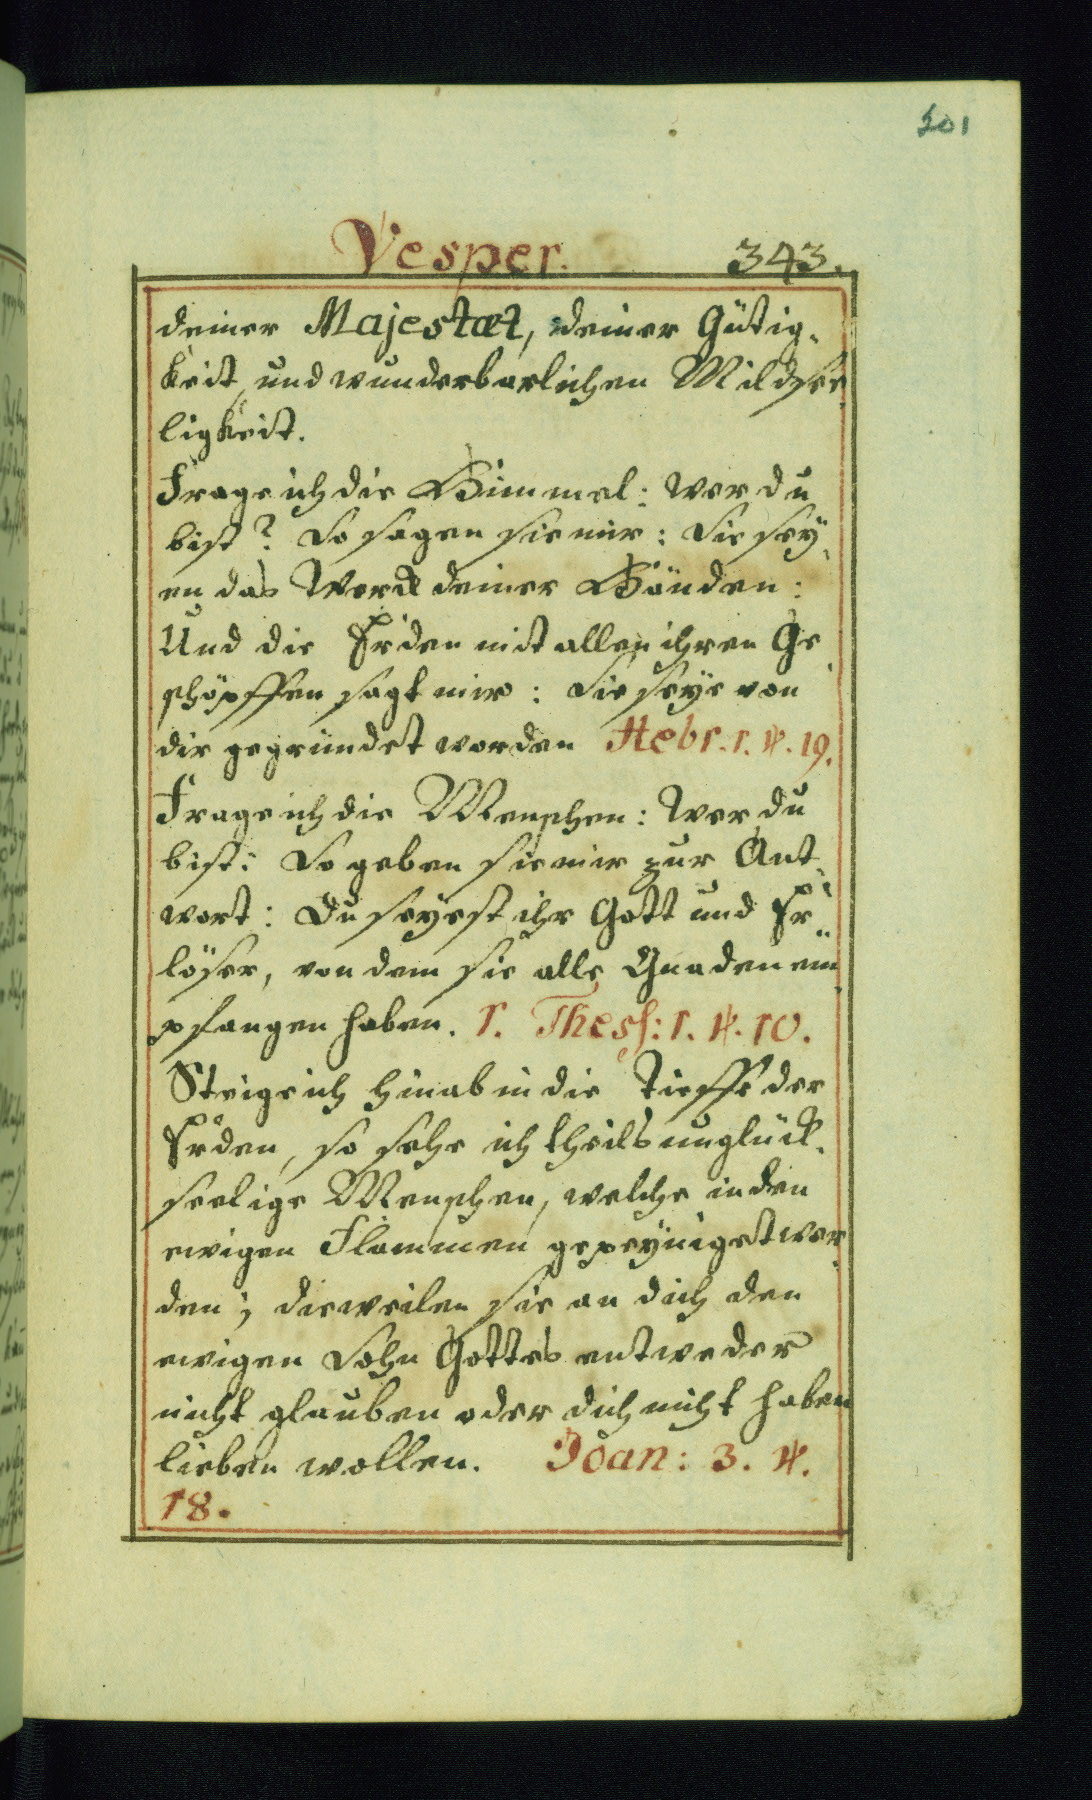 201
Vesper. 343.
deiner Majestæt, deiner Gütig-
keit, und wunderbarlichen Mildsee
ligkeit.
Frage ich die Himmel: wer du
bist? So sagen sie mir: Sie sey-
en das Werck deiner Händen:
Und die Erden mit allen ihren Ge
schöpffen sagt mir: Sie seye von
dir gegründet worden Hebr. 1. ℣. 19.
Frage ich die Menschen: Wer du
bist: So geben sie mir zur Ant-
wort: Du seyest ihr Gott und Er-
löser, von dem sie alle Gnaden em
pfangen haben. 1. Thess: 1. ℣. 10.
Steige ich hinab in die Tieffe der
Erden, so sehe ich theils unglück-
seelige Menschen, welche in den
ewigen Flammen gepeyniget wer
den; dieweilen sie an dich den
ewigen Sohn Gottes entweder
nicht glauben oder dich nicht haben
lieben wollen. Joan: 3. ℣.
18.